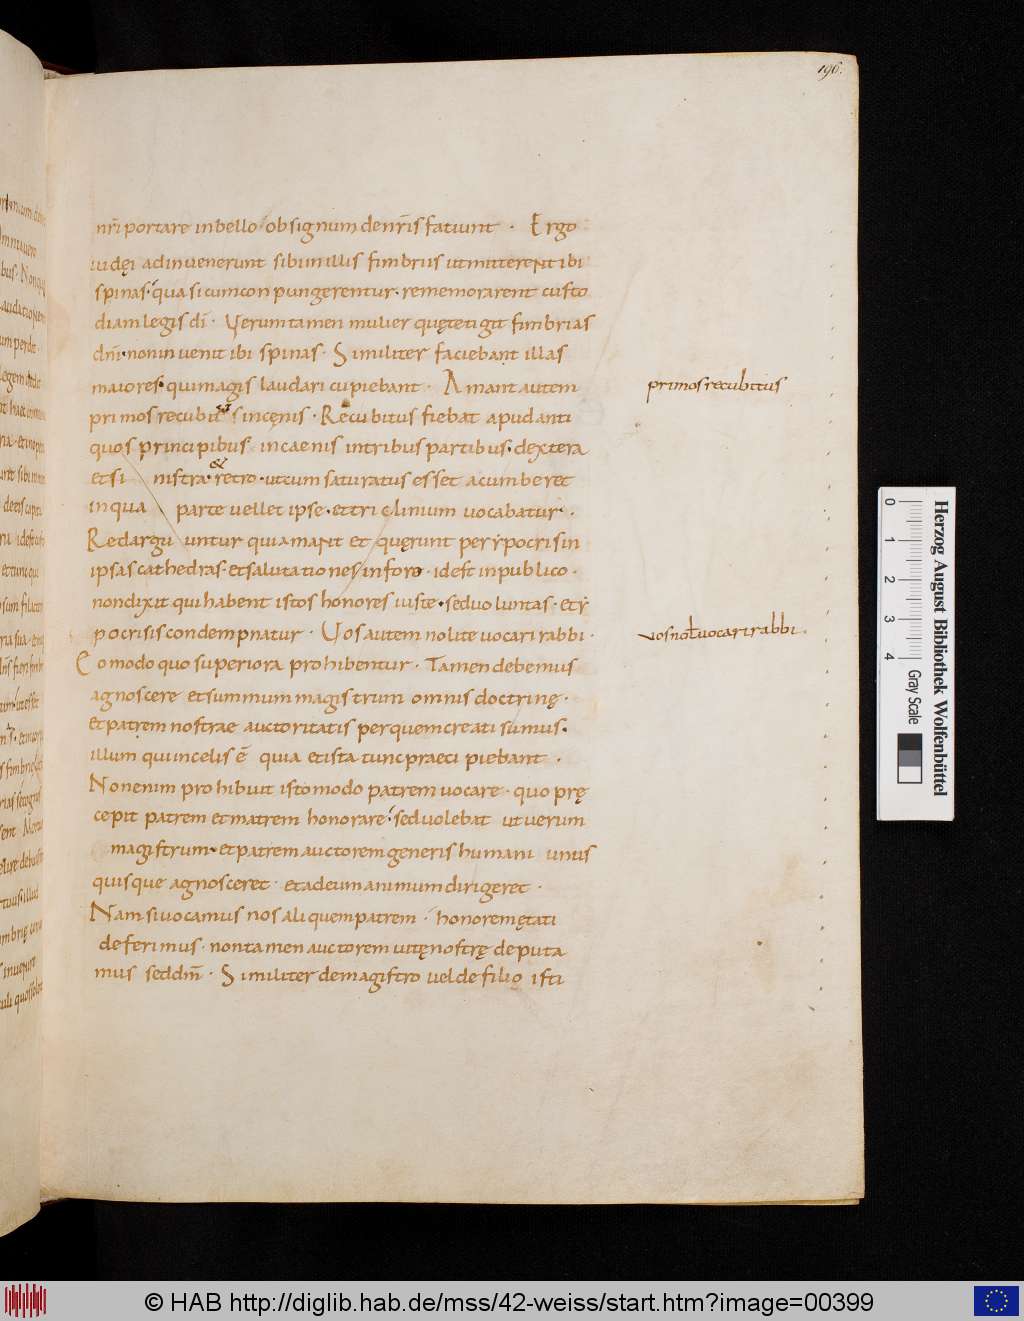 196.
nr̄i portare in bello · ob signum de nr̄is fatiunt · Ergo
iudęi adinuenerunt sibi in illis fimbriis ut mitterent ibi
spinas · qua si cum conpungerentur · rememorarent custo
diam legis dī · Verumtamen mulier quę tetigit fimbrias
dn̄i · non inuenit ibi spinas · Similiter faciebant illas
maiores · qui magis laudari cupiebant · Amant autem
primos recubit in cęnis · Recubitus fiebat apud anti
quos principibus in caenis in tribus partibus · dextera
et si nistra · & retro · ut cum saturatus esset acumberet
in qua parte uellet ipse · et triclinium uocabatur ·
Redargu untur qui amant et quęrunt per ypocrisin
ipsas cathedras et salutationes in foro · id est in publico ·
non dixit qui habent istos honores iuste · sed uoluntas · et y
pocrisis condempnatur · Uos autem nolite uocari rabbi ·
Eo modo quo superiora prohibentur · Tamen debemus
agnoscere et summum magistrum omnis doctrinę ·
et patrem nostrae auctoritatis per quem creati sumus ·
illum qui in celis ē quia et ista tunc praecipiebant ·
Non enim prohibuit isto modo patrem uocare · quo prę
cepit patrem et matrem honorare · sed uolebat ut uerum
magistrum · et patrem auctorem generis humani unus
quisque agnosceret · et ad eum animum dirigeret ·
Nam si uocamus nos aliquem patrem · honorem ętati
deferimus · non tamen auctorem uitę nostrę deputa
mus sed dm̄ · Similiter de magistro uel de filio isti
primos recubitus
uos nol̄ uocari rabbi ·
0 1 2 3 4
Gray Scale
Herzog August Bibliothek Wolfenbüttel
© HAB http://diglib.hab.de/mss/42-weiss/start.htm?image=00399